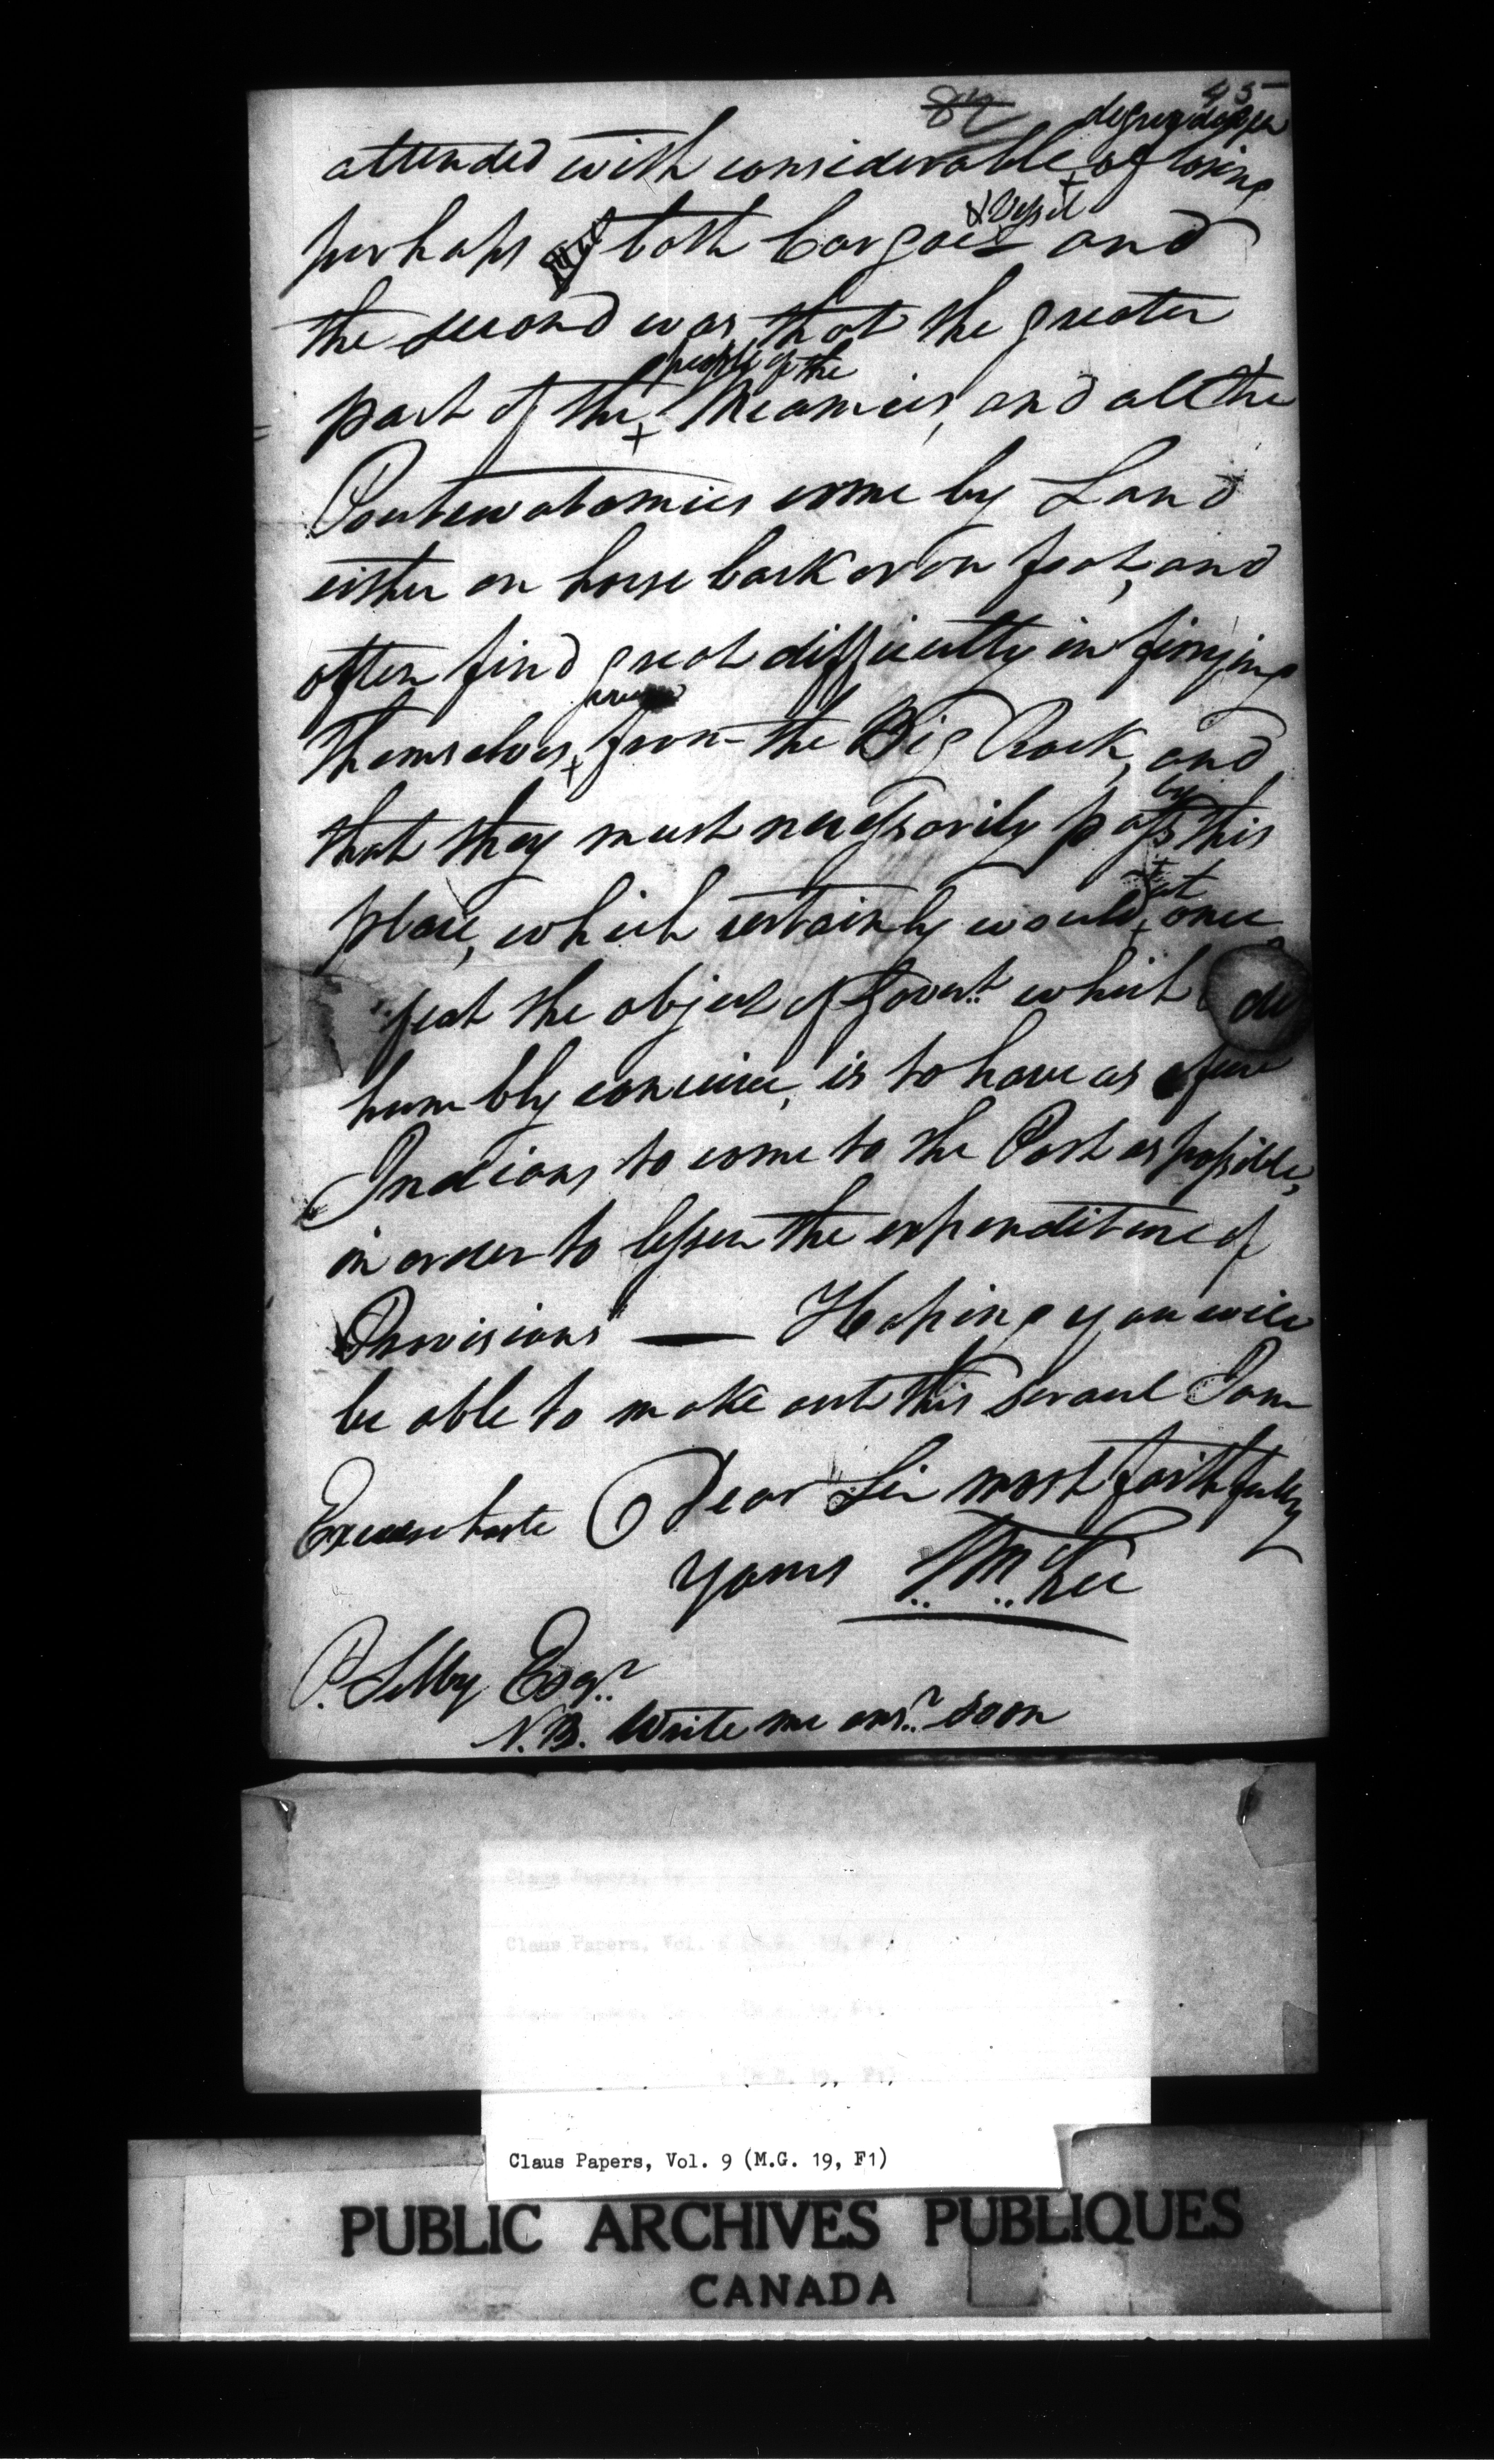 82 45
degree danger
attended with considerable + of losing
& Vessel
perhaps both Cargoes and
the second was, that the greater
people of the
part of the + Meamies, and all the
Poutewatamies come by Land
either on horse back or on foot, and
often find great difficulty in ferrying
themselves + from the Big Rock, and
by
that they must necessarily pass this
at
place, which certainly would + once
feat the object of Govert. which de
humbly conceive, is to have as few
Indians to come to the Post as possible,
in order to lessen the expenditure of
Provisions — Hoping you will
be able to make out this scrawl I am
Dear Sir most faithfully
Excuse haste
yours TMcKee
P. Selby Esqr.
N.B. Write me ansr. soon
Claus Papers, Vol. 9 (M.G. 19, F1)
PUBLIC ARCHIVES PUBLIQUES
CANADA